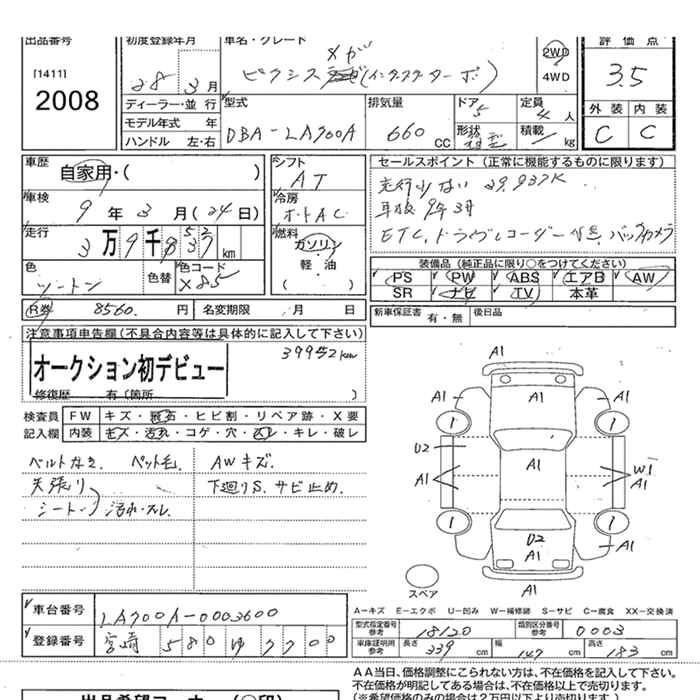 出品番号
[1411]
2008
初度登録年月
28 年 3 月
ディーラー・並 行
モデル年式 年
ハンドル 左・右
車名・グレード
ピクシスメガ (インタクターボ)
2WD
4WD
型式
DBA-LA700A
排気量
660 cc
ドア
5
形状
定員
4 人
積載
kg
評 価 点
3.5
外 装 内 装
C C
車歴
自家用・( )
車検
9 年 3 月 (24 日)
走行
3 万 9 千 km
色
ツートン
色替
色コード
X85
シフト
AT
冷房
オートAC
燃料
ガソリン
軽・油
R券 8560 円 名変期限 月 日
セールスポイント (正常に機能するものに限ります)
走行少ない 39.937K
車検9年3月
ETC. ドライブレコーダー付き バックカメラ
装備品 (純正品に限り○をつけてください)
PS PW ABS エアB AW
SR ナビ TV 本革
新車保証書 有・無 後日品
注意事項車告欄(不具合内容等は具体的に記入して下さい)
39952km
オークション初デビュー
修復歴 有(箇所 )
検査員
記入欄
FW キズ・飛石・ヒビ割・リペア跡・X要
内装 キズ・汚れ・コゲ・穴・スレ・キレ・破レ
ベルトなき. ペット毛. AWキズ.
天張り 下廻りS. サビ止め.
シート 汚れ・スレ
A1
A1 A1 A1
U2
A1 A1 W1
A1
U2
A1 A1
A1
スペア
A-キズ E-エクボ U-凹み W-補修跡 S-サビ C-腐食 XX-交換済
車台番号 LA700A-0003600
登録番号 宮崎 580 ゆ 7700
型式指定番号
参考
18120
類別区分番号
参考
0003
車庫証明用
参考
長さ 339 cm 幅 147 cm 高さ 183 cm
AA当日、価格調整にこられない方は、不在価格を記入して下さい。
不在価格が明記してある場合は、不在価格以上で売ります。
(※希望価格のみの場合は2万円以下より売切ります)
出品希望コーナー(○印)